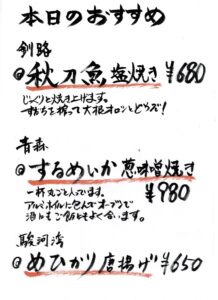 本日のおすすめ
釧路
秋刀魚塩焼き ¥680
じっくりと焼き上げます。
すだちを搾って大根オロシとどうぞ!
青森
するめいか葱味噌焼き
¥980
一杯丸ごと入ってます。
アルミホイルに包んでオーブンで
酒にもご飯にもよく合います。
駿河湾
めひかり唐揚げ ¥650